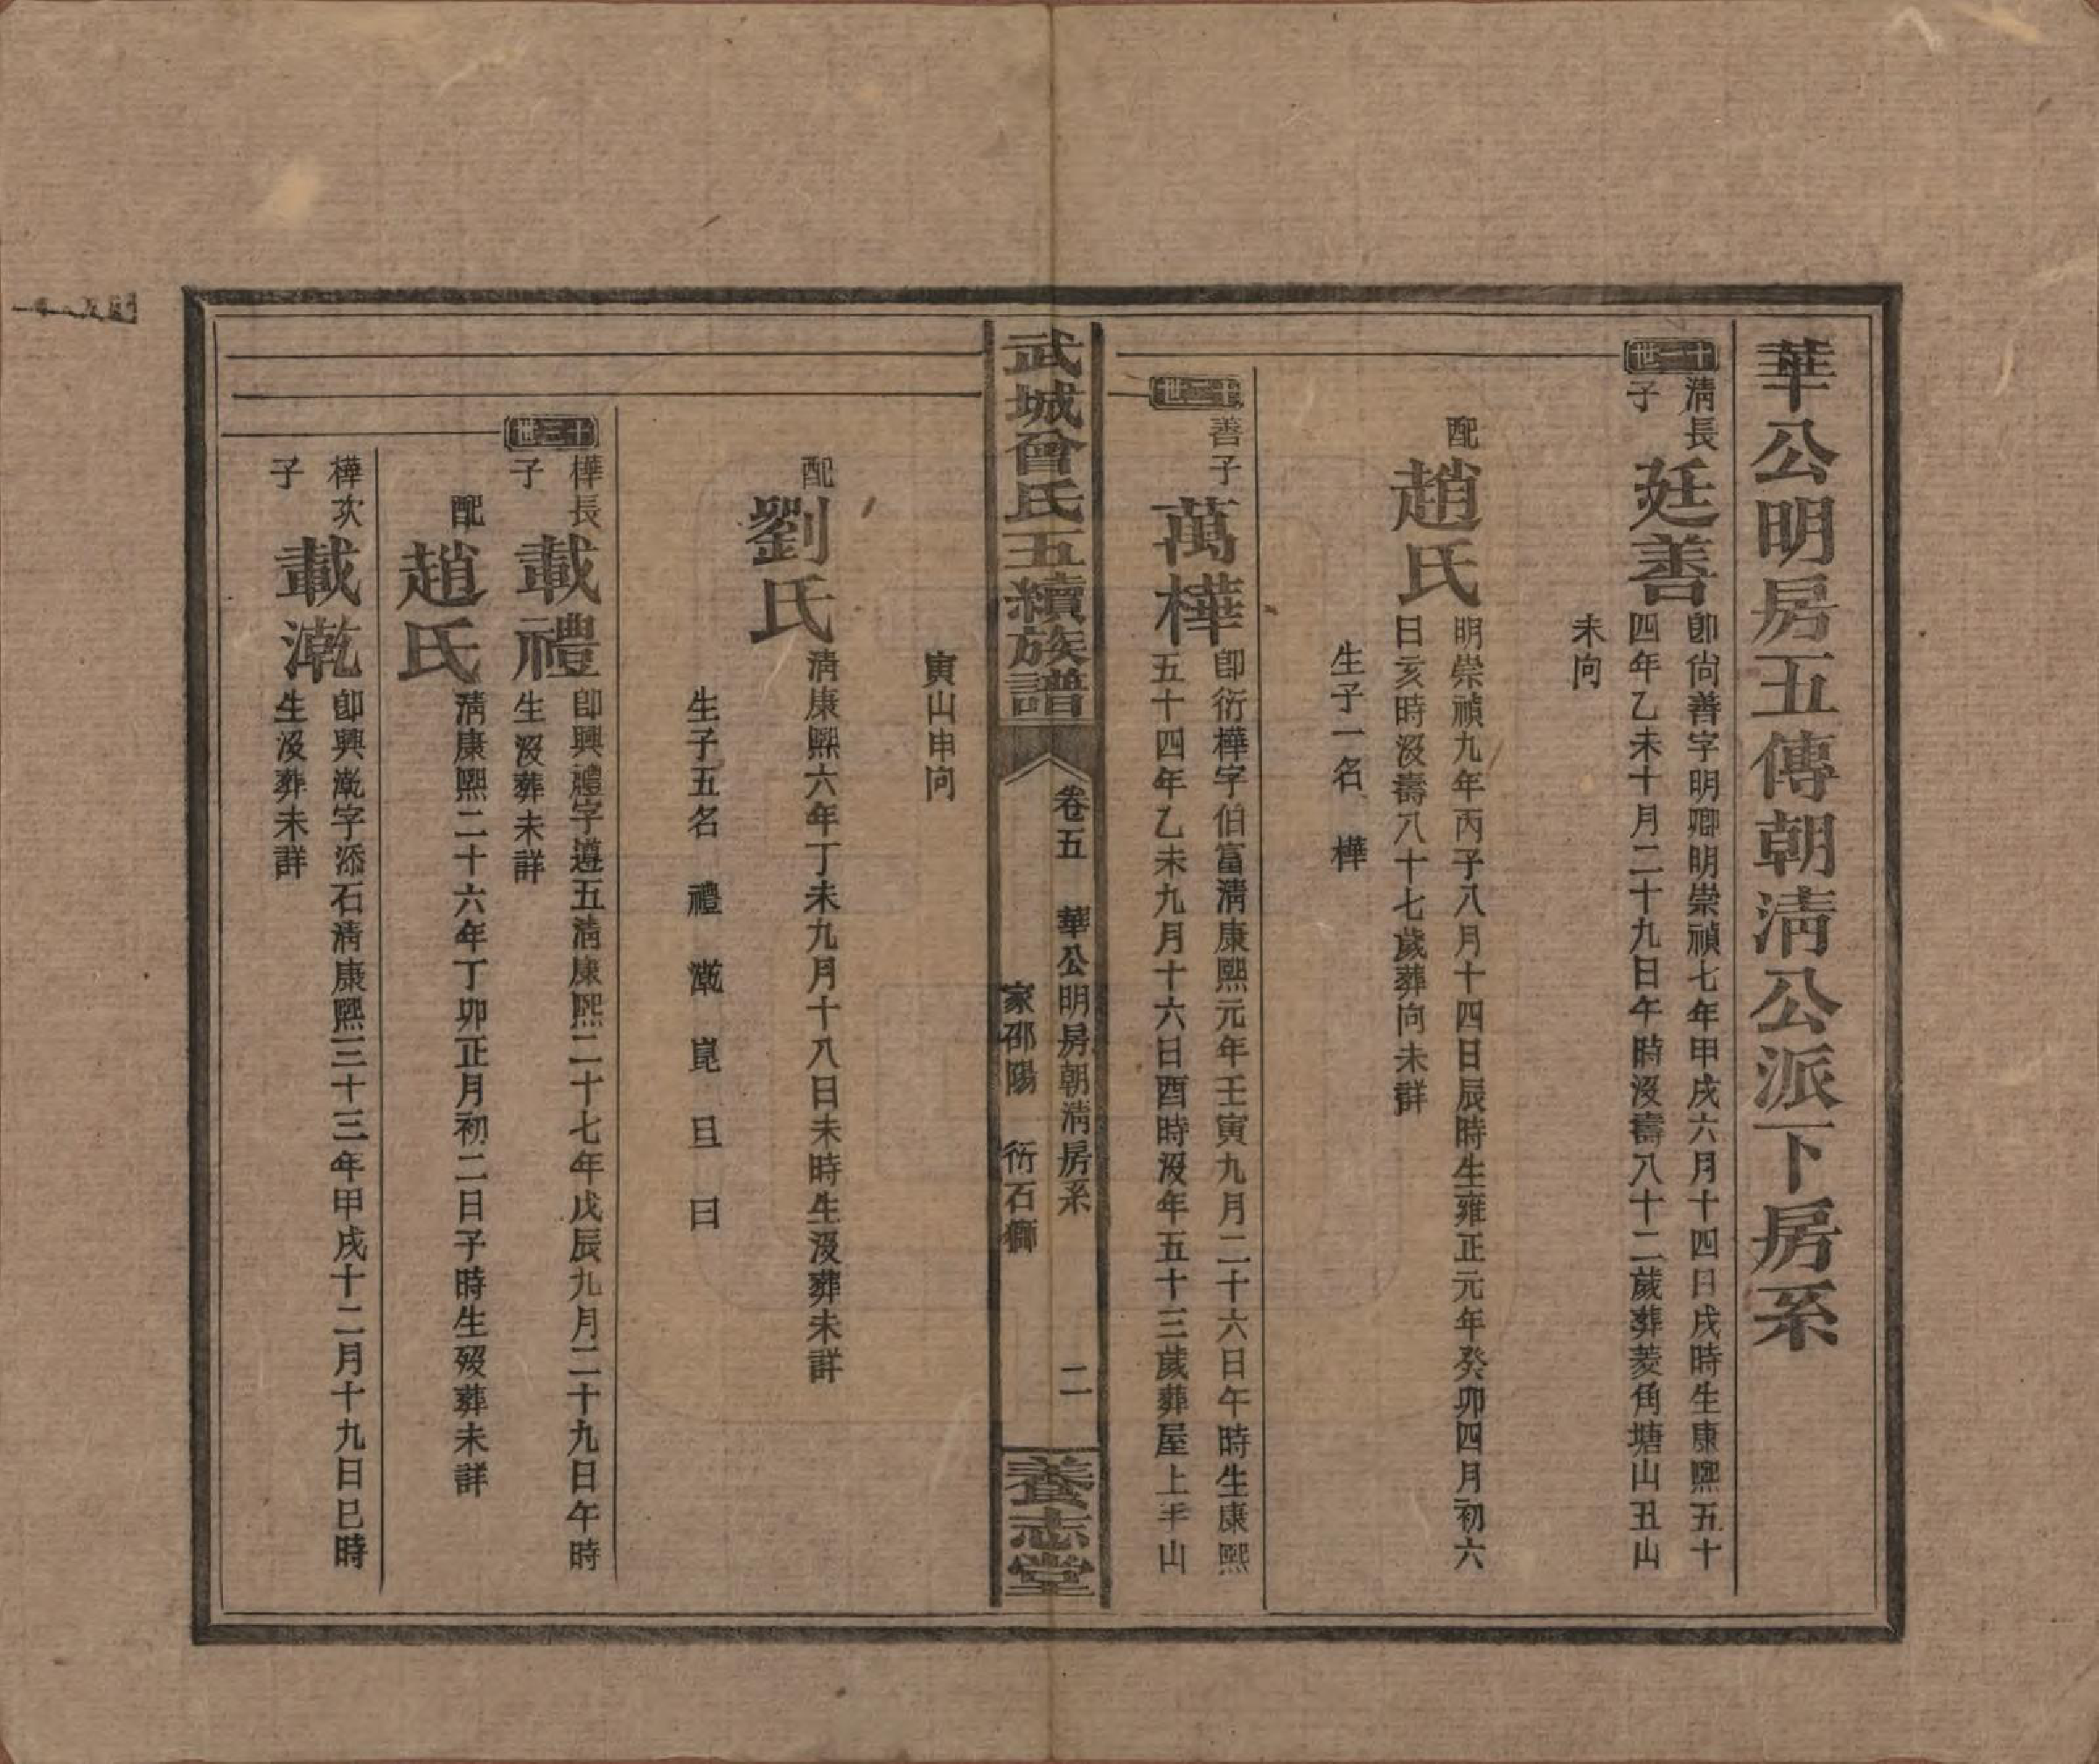 華公明房五傳朝淸公派下房系
十一世
淸長子
廷善
卽尙善字明卿明崇禎七年甲戌六月十四日戌時生康熙五十
四年乙未十月二十九日午時沒壽八十二歲葬菱角塘山丑山
未向
配
趙氏
明崇禎九年丙子八月十四日辰時生雍正元年癸卯四月初六
日亥時沒壽八十七歲葬向未詳
生子一名 樺
十二世
善子
萬樺
卽衍樺字伯富淸康熙元年壬寅九月二十六日午時生康熙
五十四年乙未九月十六日酉時沒年五十三歲葬屋上手山
武城曾氏五續族譜
卷五 華公明房朝淸房系 二
家邵陽 衍石獅
養志堂
寅山申向
配
劉氏
淸康熙六年丁未九月十八日未時生沒葬未詳
生子五名 禮 漖 崑 旦 曰
十三世
樺長子
載禮
卽興禮字遵五淸康熙二十七年戊辰九月二十九日午時
生沒葬未詳
配
趙氏
淸康熙二十六年丁卯正月初二日子時生歿葬未詳
樺次子
載漖
卽興漖字添石淸康熙三十三年甲戌十二月十九日巳時
生沒葬未詳